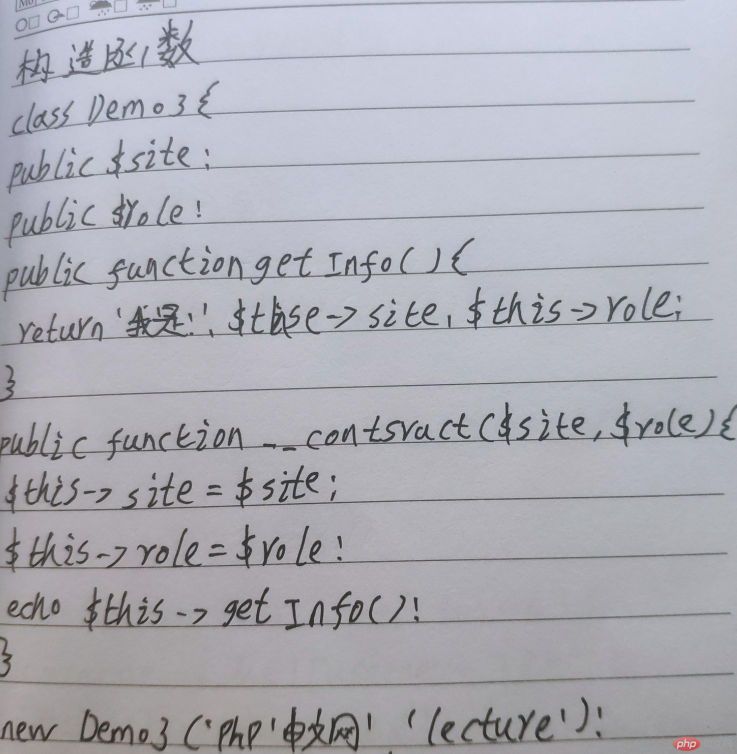 构造函数
class Demo3{
public $site;
public $role!
public function get Info(){
return '我是:', $thise->site, $this->role;
}
public function __contsract($site, $role){
$this->site = $site;
$this->role = $role!
echo $this->get Info()!
}
new Demo3('PhP'中文网' 'lecture')!
php